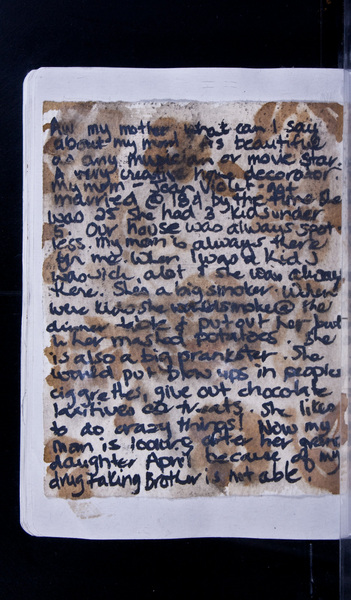 Aw my mother what can I say
about my mom! As beautiful
as any musician or movie star.
A very creative home decorator
My mom - Jean Violet got
married @ 18 & by the time she
was 25 she had 3 kids under
5. Our house was always spot
less. my mom is always there
for me. When I was a kid I
was sick alot & she was always
there. She's a big smoker. When
we were kids she would smoke @ the
dinner table & put out her butt
in her mashed potatoes. She
is also a big prankster. She
would put blow ups in peoples
ciggrettes, give out chocolate
laxitives as treats. She likes
to do crazy things! Now my
mom is looking after her grand
daughter April because of my
drug taking Brother is not able.